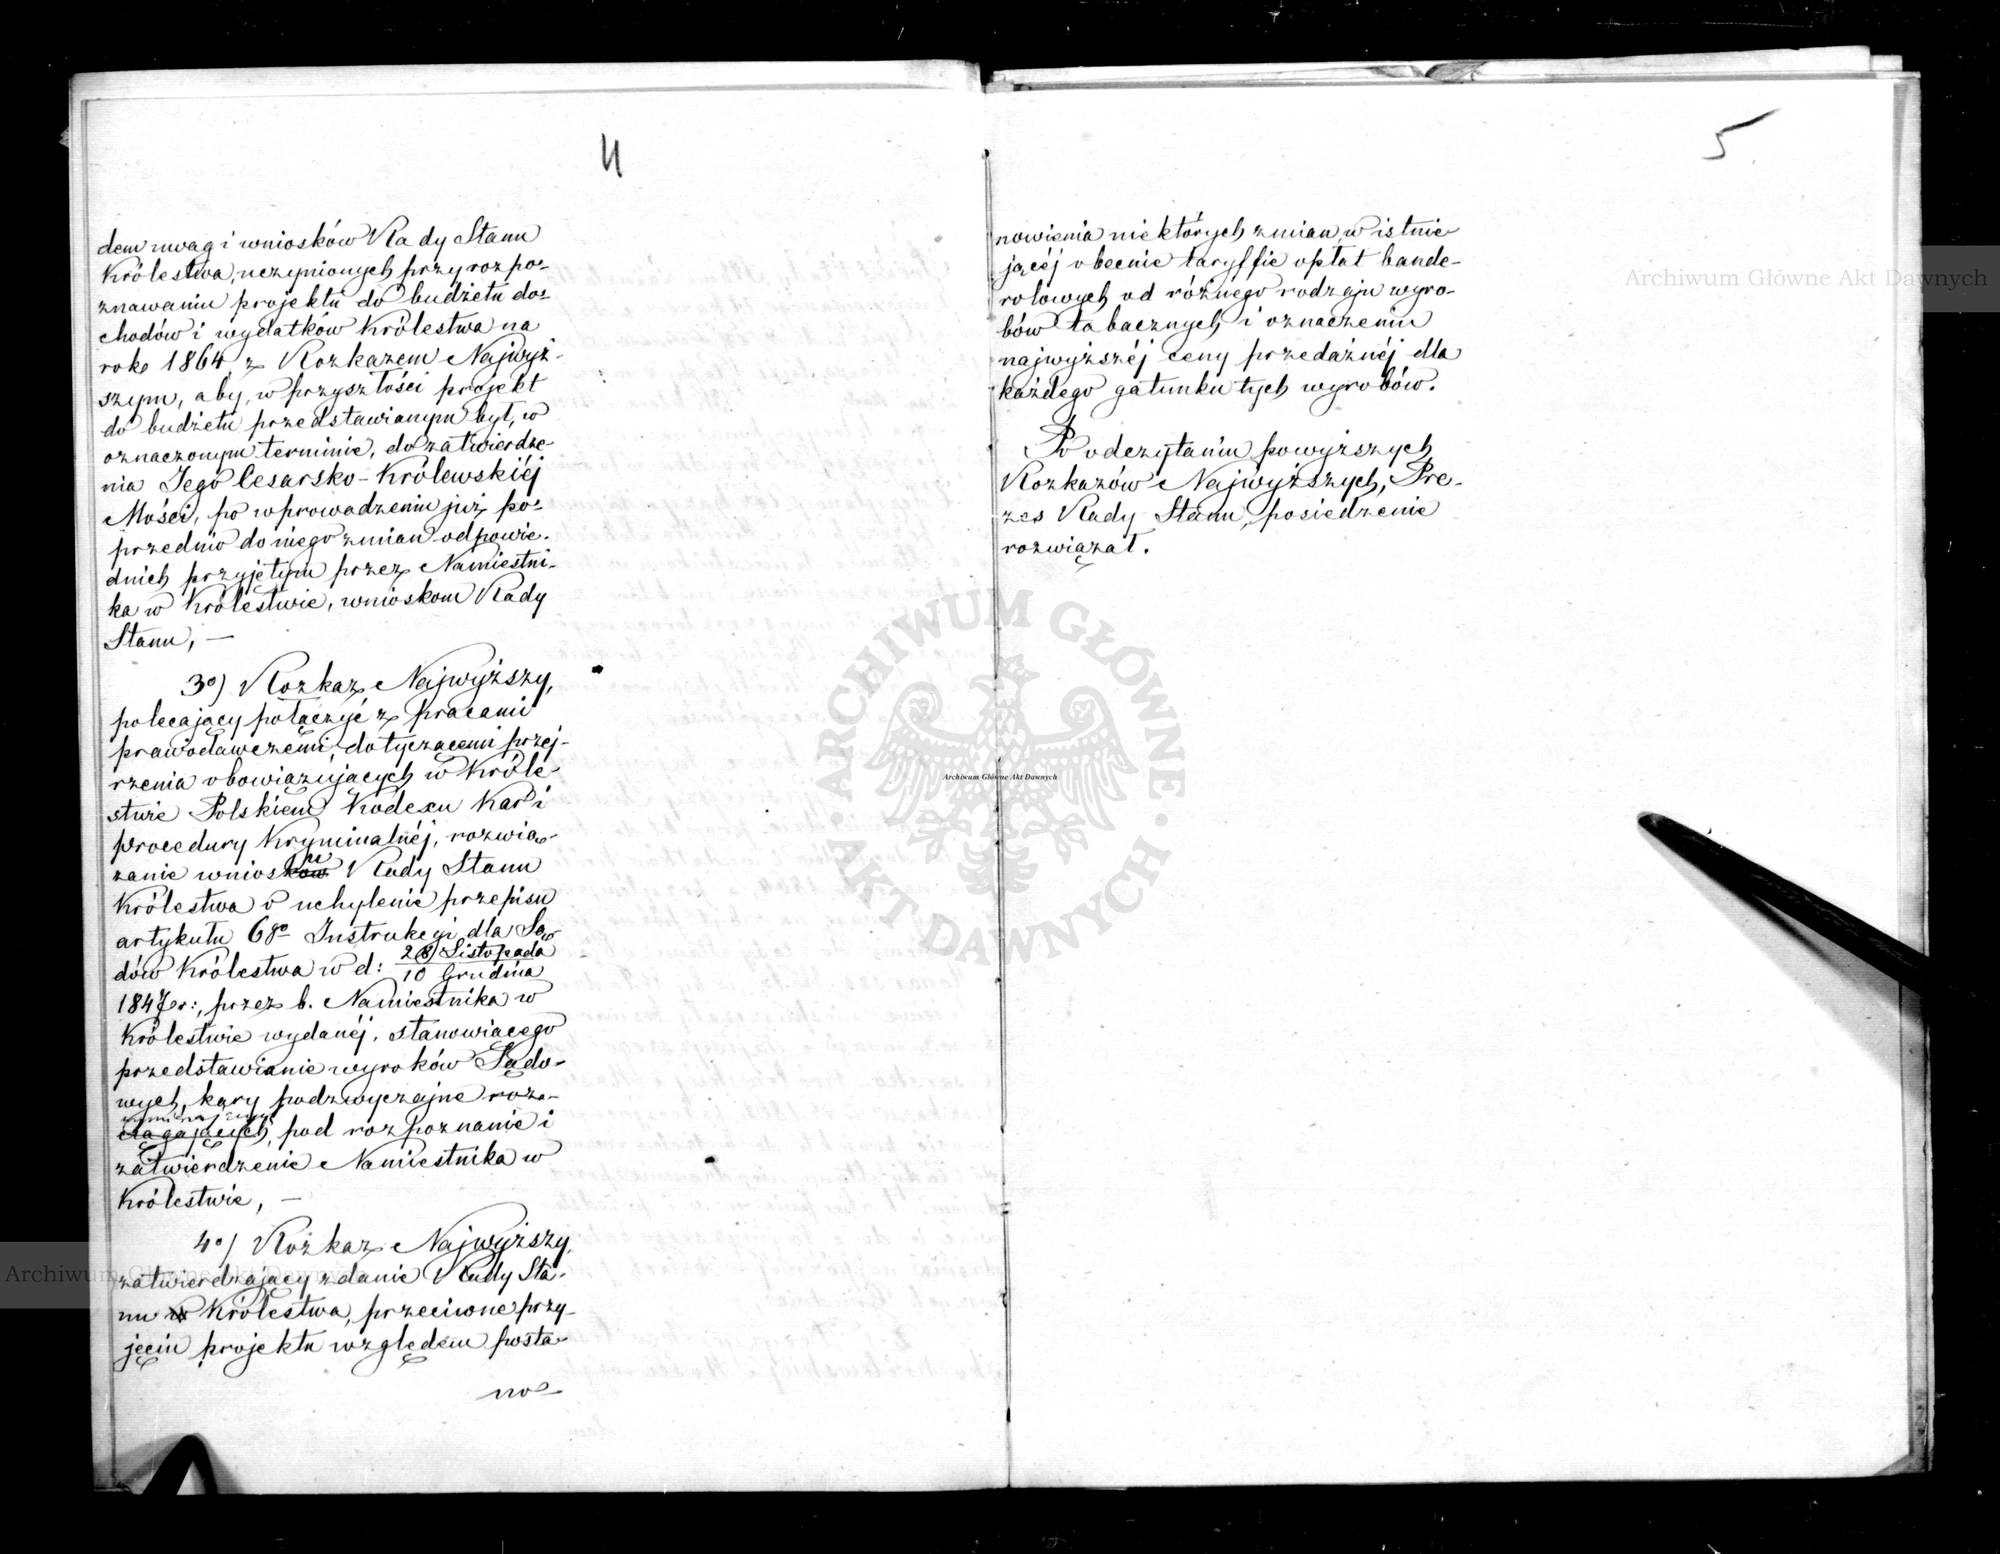 4
dem uwag i wniosków Rady Stanu
Królestwa, uczynionych przy rozpo-
znawaniu projektu do budżetu do-
chodów i wydatków Królestwa na
rok 1864, z Rozkazem Najwyż-
szym, aby, w przyszłości projekt
do budżetu przedstawianym był, w
oznaczonym terminie, do zatwierdze-
nia Jego Cesarsko-Królewskiéj
Mości, po wprowadzeniu już po-
przednio do niego zmian odpowie-
dnich przyjętym przez Namiestni-
ka w Królestwie, wnioskom Rady
Stanu, —
3o) Rozkaz Najwyższy,
polecający połączyć z pracami
prawodawczemi, dotyczącemi przej-
rzenia obowiązujących w Króle
stwie Polskiem Kodexu Kar i
procedury Kryminalnéj, rozwią-
zanie wniosku Rady Stanu
Królestwa o uchylenie przepisu
artykułu 68o Instrukcyi dla Są-
dów Królestwa w d: 28 Listopada
10 Grudnia
1847 r:, przez b. Namiestnika w
Królestwie wydanéj, stanowiącego
przedstawianie wyroków Sądo-
wych, kary podzwyczajne
ciągających, pod rozpoznanie i
zatwierdzenie Namiestnika w
Królestwie, —
4o) Rozkaz Najwyższy,
zatwierdzający zdanie Rady Sta-
nu Królestwa, przeciwne przy-
jęciu projektu względem posta-
no-
5
nowienia niektórych zmian, w istnie
jącéj obecnie taryffie opłat bande-
rolowych od różnego rodzaju wyro-
bów tabacznych i oznaczeniu
najwyższéj ceny przedażnéj dla
każdego gatunku tych wyrobów.
Po odczytaniu powyższych
Rozkazów Najwyższych, Pre-
zes Rady Stanu, posiedzenie
rozwiązał.
Archiwum Główne Akt Dawnych
ARCHIWUM GŁÓWNE AKT DAWNYCH
Archiwum Główne Akt Dawnych
Archiwum Główne Akt Dawnych